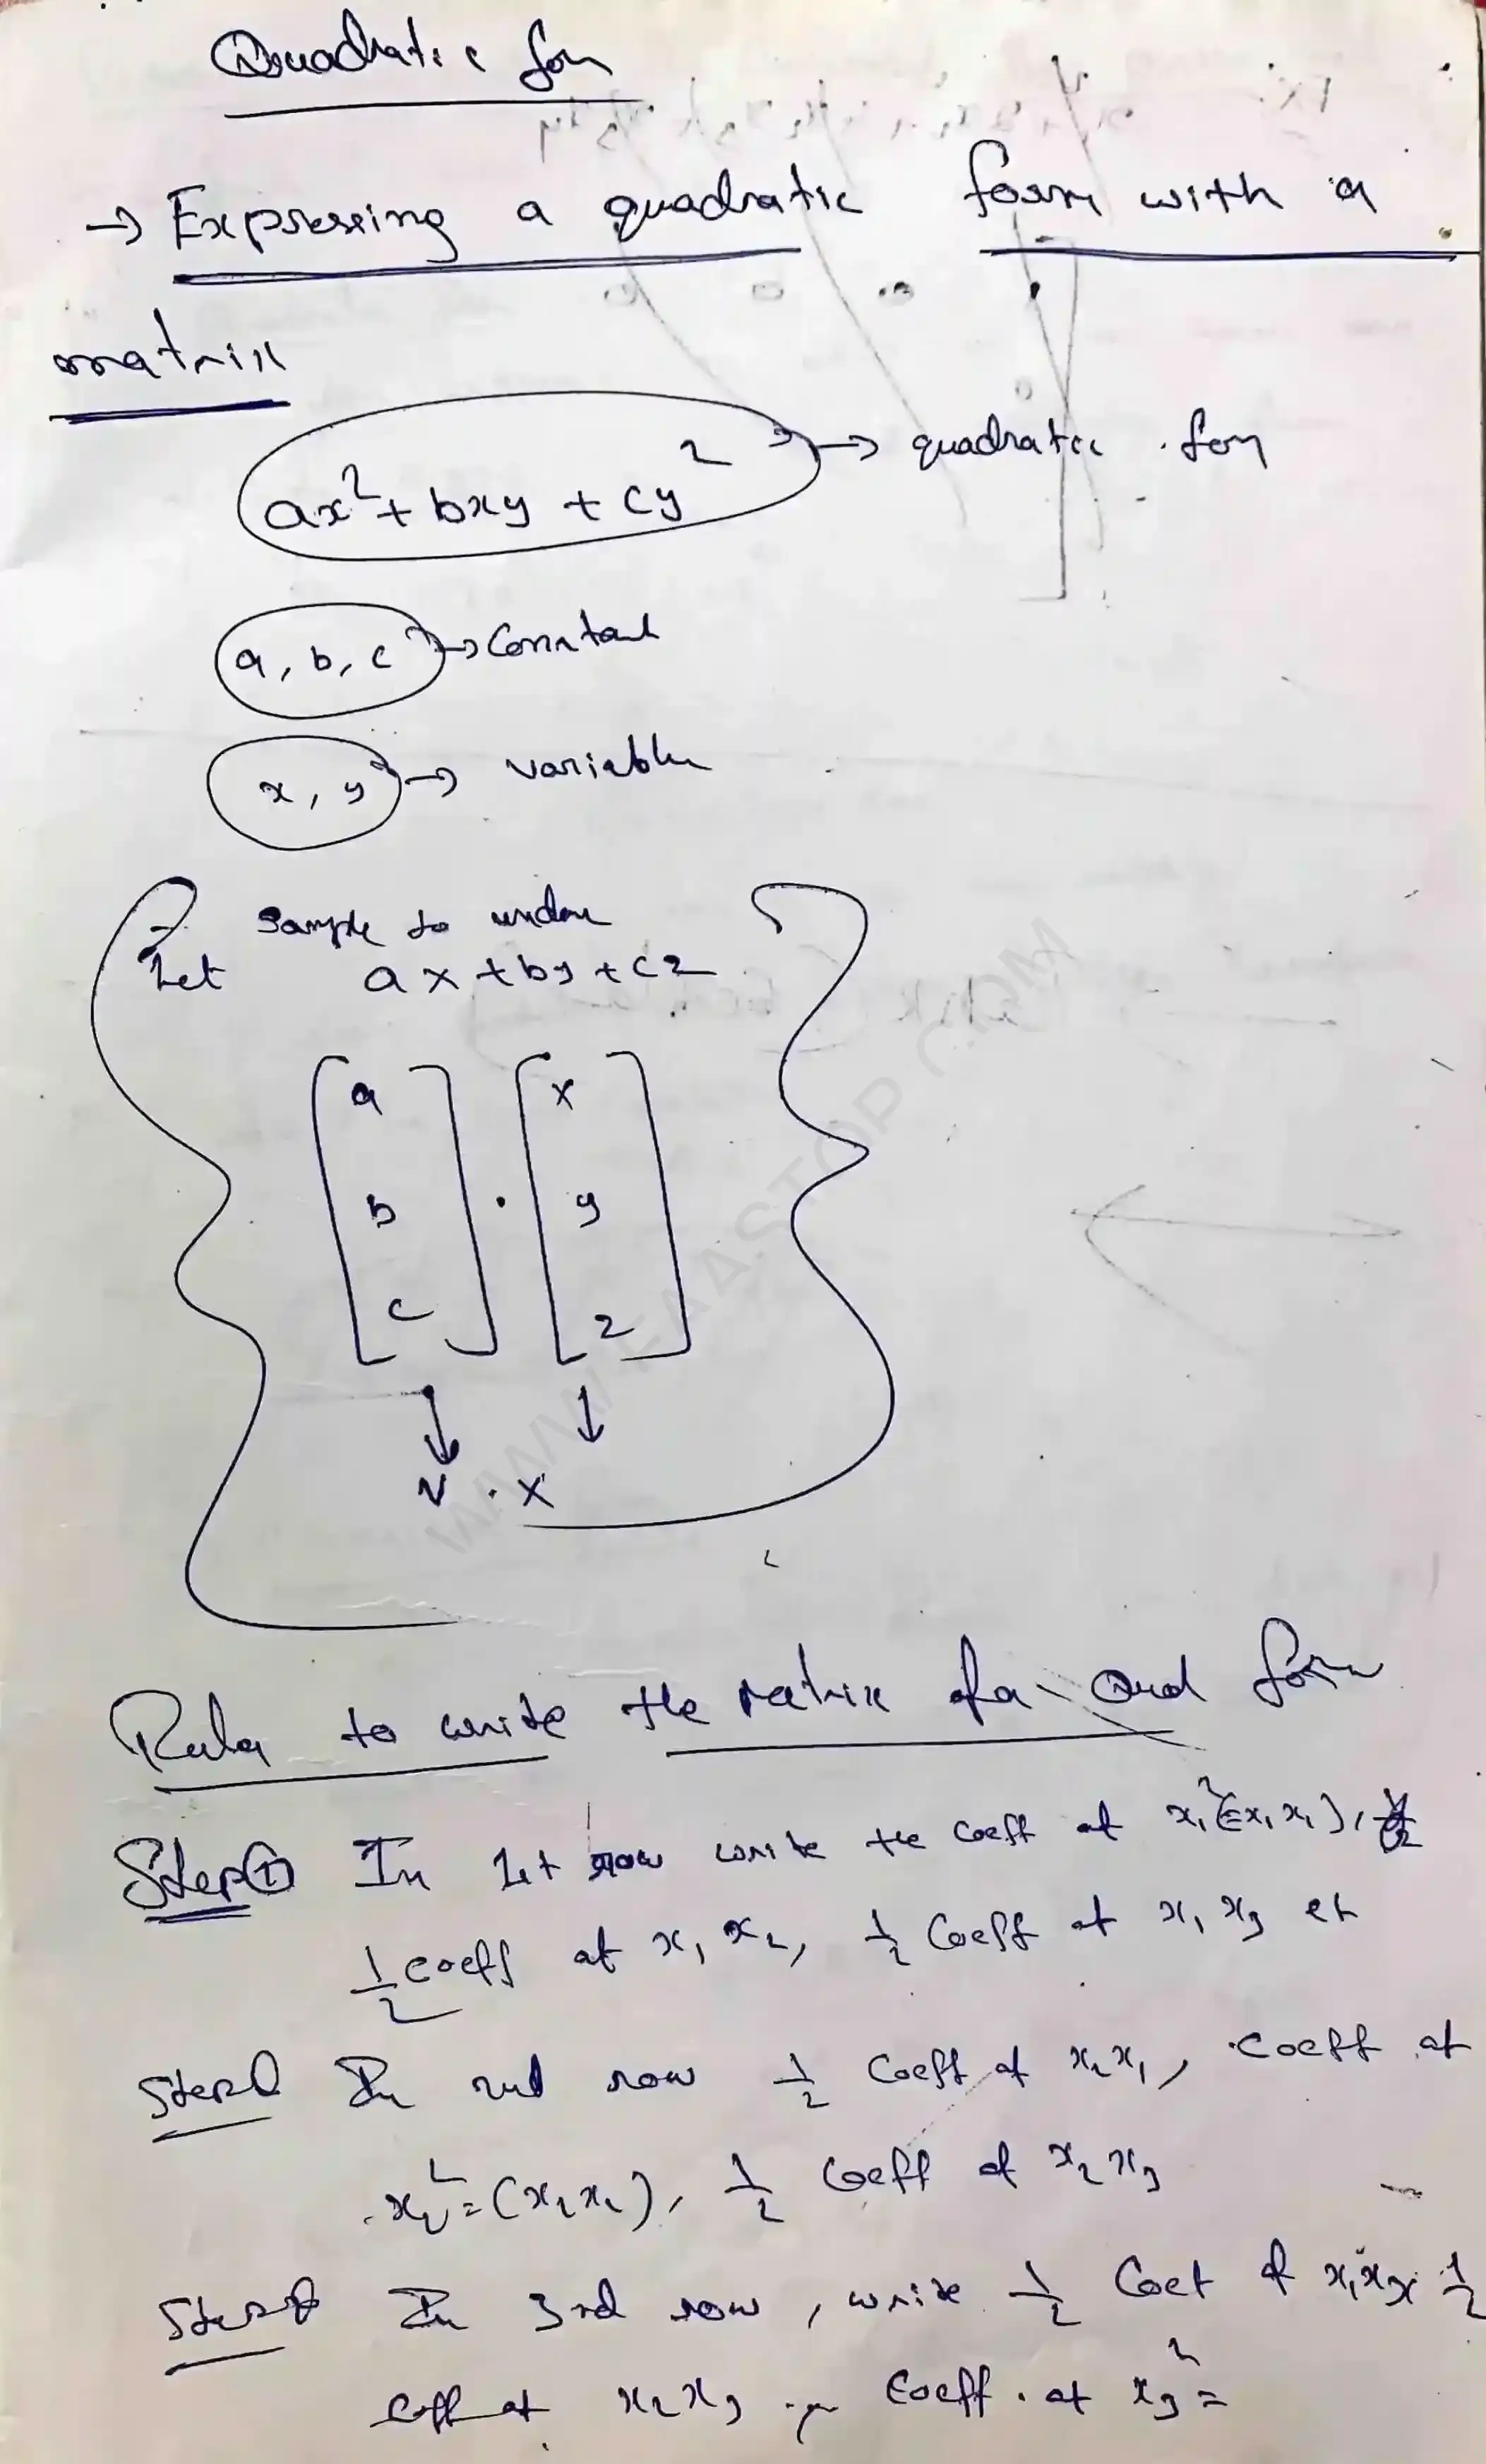 Quadratic form
→ Expressing a quadratic form with a
matrix
ax² + bxy + cy² → quadratic form
a, b, c → Constant
x, y → variable
Sample to under
Let ax + by + cz
[a b c] · [x y z]
↓ ↓
V · X
Rules to write the matrix of a Quad form
Step ① In 1st row write the coeff of x₁² (= x₁ x₁),
½ coeff of x₁ x₂, ½ Coeff of x₁ x₃ et
Step In 2nd row ½ Coeff of x₂x₁, coeff of
x₂² = (x₂x₂), ½ Coeff of x₂x₃
Step In 3rd row, write ½ Coef of x₁x₃ ½
Coff of x₂x₃ Coeff. of x₃² =
WWW.FAASTOP.COM